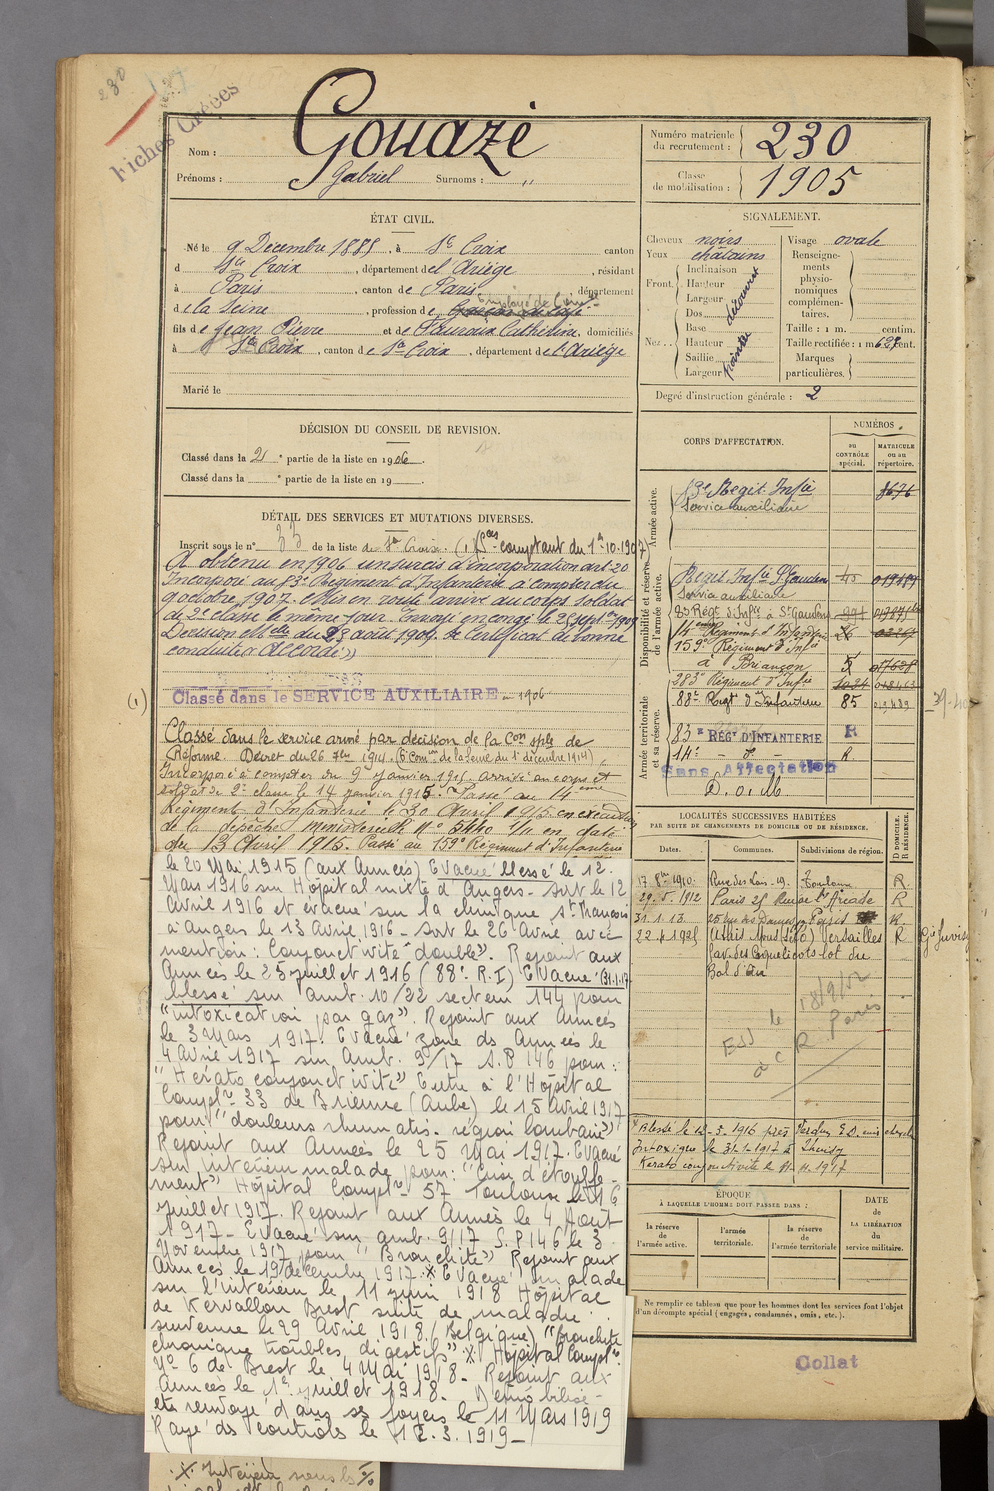 230
Fiches Créées
Nom : Gouazé
Prénoms : Gabriel Surnoms : "
Numéro matricule du recrutement : 230
Classe de mobilisation : 1905
ÉTAT CIVIL.
Né le 9 Décembre 1885, à Ste Croix canton
d Ste Croix, département de l'Ariège, résidant
à Paris, canton de Paris, département
de la Seine, profession de Employé de
fils de Jean Pierre et de Catherine, domiciliés
à Ste Croix, canton de Ste Croix, département de l'Ariège
Marié le
SIGNALEMENT.
Cheveux noirs
Yeux châtains
Front. Inclinaison
Hauteur
Largeur
découvert
Nez. Dos
Base
Hauteur
Saillie
Largeur
Visage ovale
Renseigne-
ments
physio-
nomiques
complémen-
taires.
Taille : 1 m. centim.
Taille rectifiée : 1 m 62 cent.
Marques
particulières.
Degré d'instruction générale : 2
DÉCISION DU CONSEIL DE REVISION.
Classé dans la 2e partie de la liste en 1906.
Classé dans la e partie de la liste en 19
DÉTAIL DES SERVICES ET MUTATIONS DIVERSES.
Inscrit sous le n° 33 de la liste de Ste Croix. (1) comptant du 1er 10.1907)
A obtenu en 1906 un sursis d'incorporation art. 20
Incorporé au 83e Régiment d'Infanterie à compter du
9 octobre 1907. Mis en route arrivé au corps soldat
de 2e classe le même jour. Envoyé en congé le 25 septbre 1909
Décision Mlle du 23 août 1909. Certificat de bonne
conduite "Accordé"
(1) Classé dans le SERVICE AUXILIAIRE en 1906
Classé dans le service armé par décision de la Con sple de
Réforme. Décret du 26 7bre 1914. (6e Comon de la Seine du 1er décembre 1914)
Incorporé à compter du 9 janvier 1915. arrivé au corps et
soldat de 2e classe le 14 janvier 1915. Passé au 14eme
Régiment d'Infanterie le 30 Avril 1915 en exécution
de la dépêche ministérielle N° 5440 1/1 en date
du 13 Avril 1915. Passé au 159e Régiment d'Infanterie
le 20 Mai 1915 (aux Armées) Evacué blessé le 12.
Mars 1916 sur Hôpital mixte d'Angers - sort le 12
Avril 1916 et évacué sur la clinique St François
à Angers le 13 Avril 1916 - Sort le 26 Avril avec
mention : Conjonctivite double". Rejoint aux
Armées le 25 juillet 1916 (88e R.I) Evacué (31.1.17
blessé sur Amb. 10/22 secteur 144 pour
"intoxication par gaz". Rejoint aux Armées
le 3 Mars 1917. Evacué zône des Armées le
4 Avril 1917 sur Amb. 9/17 S.P 146 pour :
"Kérato conjonctivite" Entre à l'Hôpital
Complre 33 de Brienne (Aube) le 15 avril 1917
pour "douleurs rhumatis. région lombaire"
Rejoint aux Armées le 25 Mai 1917. Evacué
sur intérieur malade pour : "Crise d'étouffe-
ment" Hôpital Complre 57 Toulouse le 16
juillet 1917. Rejoint aux Armées le 4 Août
1917 - Evacué sur amb. 9/17 S.P 146 le 3
Novembre 1917 pour "Bronchite" Rejoint aux
Armées le 19 décembre 1917. x Evacué malade
sur l'intérieur le 11 juin 1918 Hôpital
de Kervallon Brest suite de maladie
survenue le 29 Avril 1918. (Belgique) "bronchite
chronique troubles digestifs" x Hôpital Complre
N° 6 de Brest le 4 Mai 1918 - Rejoint aux
Armées le 1er juillet 1918. Démobilisé
et renvoyé dans ses foyers le 11 Mars 1919
Rayé des contrôles le 12.3.1919 -
CORPS D'AFFECTATION.
NUMÉROS
au CONTRÔLE spécial.
MATRICULE ou au répertoire.
Armée active.
83e Régit Infie 8676
Service auxiliaire
Disponibilité et réserve de l'armée active.
Régit Infie St Gaudens 40
Service auxiliaire
83 Régt d'Infie à St Gaudens
14eme Régiment d'Infanterie
159e Régiment d'Infie
à Briançon 5
Armée territoriale et sa réserve.
283e Régiment d'Infie
88e Regt d'Infanterie 85
83e RÉGt D'INFANTERIE R
14e - d° - R.
Sans Affectation
D. o. M.
LOCALITÉS SUCCESSIVES HABITÉES
PAR SUITE DE CHANGEMENTS DE DOMICILE OU DE RÉSIDENCE.
Dates. Communes. Subdivisions de région. D DOMICILE. R RÉSIDENCE.
17 8bre 1910. Rue des Lois. 19. Toulouse R
29.5.1912 Paris 25 Rue de l'Arcade R
31.1.13 Paris R
22.4.1925 Athis Mons (S&O) Versailles R Gie Juvisy
Coquelicots lot du
Bal d'Eté
18/9/52
R. Paris
Blessé le 12-3-1916 près Verdun
Intoxiqué le 31.1.1917 à
Kérato conjonctivite le 4.1917
ÉPOQUE
À LAQUELLE L'HOMME DOIT PASSER DANS :
la réserve de l'armée active.
l'armée territoriale.
la réserve de l'armée territoriale
DATE de LA LIBÉRATION du service militaire.
Ne remplir ce tableau que pour les hommes dont les services font l'objet
d'un décompte spécial (engagés, condamnés, omis, etc.).
Collat
x Intérieur